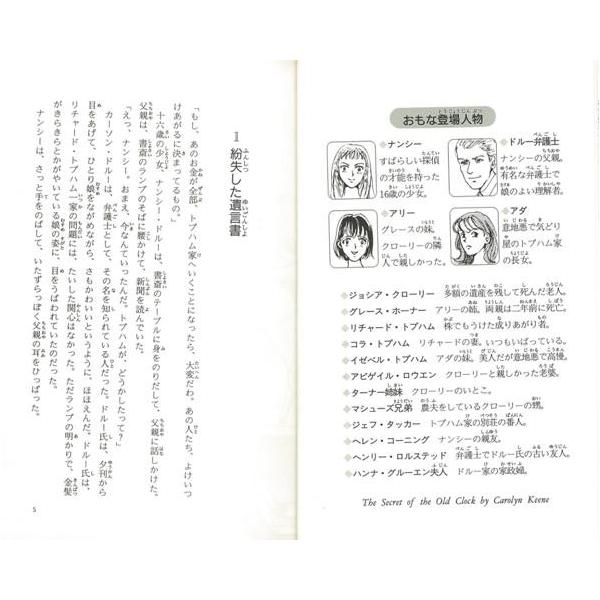 おもな登場人物
ナンシー
すばらしい探偵
の才能を持った
16歳の少女。
ドルー弁護士
ナンシーの父親。
有名な弁護士で
娘のよい理解者。
アリー
グレースの妹。
クローリーの隣
人で親しかった。
アダ
意地悪で気どり
屋のトプハム家
の長女。
ジョシア・クローリー 多額の遺産を残して死んだ老人。
グレース・ホーナー アリーの姉。両親は二年前に死亡。
リチャード・トプハム 株でもうけた成りあがり者。
コラ・トプハム リチャードの妻。いつもいばっている。
イゼベル・トプハム アダの妹。美人だが意地悪で高慢。
アビゲイル・ロウエン クローリーと親しかった老婆。
ターナー姉妹 クローリーのいとこ。
マシューズ兄弟 農夫をしているクローリーの甥。
ジェフ・タッカー トプハム家の別荘の番人。
ヘレン・コーニング ナンシーの親友。
ヘンリー・ロルステッド 弁護士でドルー氏の古い友人。
ハンナ・グルーエン夫人 ドルー家の家政婦。
The Secret of the Old Clock by Carolyn Keene
1 紛失した遺言書
「もし、あのお金が全部、トプハム家へいくことになったら、大変だわ。あの人たち、よけいつ
けあがるに決まってるもの。」
十六歳の少女、ナンシー・ドルーは、書斎のテーブルに身をのりだして、父親に話しかけた。
父親は、書斎のランプのそばに腰かけて、新聞を読んでいた。
「えっ、ナンシー。おまえ、今なんていったんだ。トプハムが、どうかしたって？」
カーソン・ドルーは、弁護士として、その名を知られている人だった。ドルー氏は、夕刊から
目をあげて、ひとり娘をながめながら、さもかわいいというように、ほほえんだ。ドルー氏は、
リチャード・トプハム一家の問題には、たいした関心はなかった。ただランプの明かりで、金髪
がきらきらとかがやいている娘の姿に、目をうばわれていたのだ。
ナンシーは、さっと手をのばして、いたずらっぽく父親の耳をひっぱった。
5